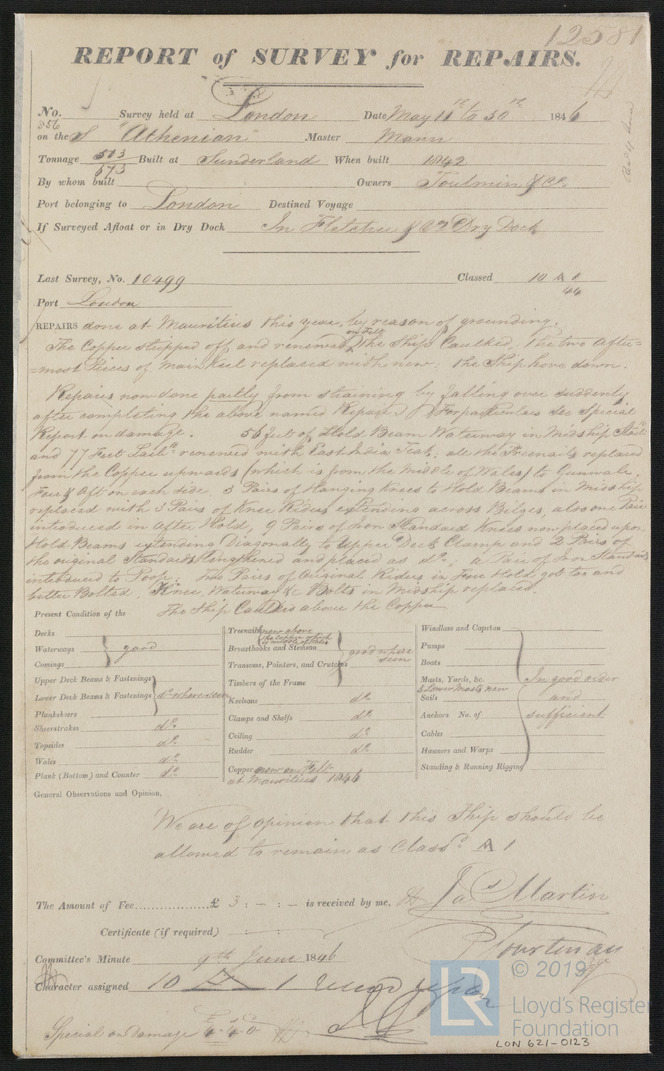 12581
REPORT of SURVEY for REPAIRS.
No. 856 Survey held at London Date May 11th to 30th 1846
on the S "Athenian" Master Mann
Tonnage 503/673 Built at Sunderland When built 1842
By whom built Owners Toulmin & Co.
Port belonging to London Destined Voyage
If Surveyed Afloat or in Dry Dock In Fletcher & Co Dry Dock
Last Survey, No. 10499 Classed 10 A 1
44
Port London
REPAIRS done at Mauritius this year, by reason of grounding.
The Copper stripped off and renewed on Felt, the Ship Caulked. The two After-
most Pieces of Main Keel replaced with new: the Ship hove down.
Repairs now done partly from straining by falling over suddenly
after completing the above named Repairs For particulars see Special
Report on damage. 56 feet of Hold Beam Waterway in Midship
and 77 Feet renewed with East India Teak, all the Treenails replaced
from the Copper upwards (which is from the Middle of Wales) to Gunwale,
Fore & Aft on each side. 3 Pairs of Hanging Knees to Hold Beams in Midship
replaced with 3 Pairs of Knee Riders extending across Bilges, also one Pair
introduced in After Hold, 9 Pairs of Iron Standard Knees now placed upon
Hold Beams extending Diagonally to Upper Deck Clamp and 2 Pairs of
the original Standards lengthened and placed as do., a Pair of Iron Standards
introduced to Poop. Two Pairs of Original Riders in Fore Hold got too and
better Bolted. Knee, Waterway & Bolts in Midship replaced.
The Ship Caulked above the Copper
Present Condition of the
Decks
Waterways good
Comings
Upper Deck Beams & Fastenings
Lower Deck Beams & Fastenings do. where seen
Planksheers
Sheerstrakes do.
Topsides do.
Wales do.
Plank (Bottom) and Counter do.
Treenails new above the copper which is middle of Wales
Breasthooks and Stemson good where seen
Transoms, Pointers, and Crutches
Timbers of the Frame
Keelsons do.
Clamps and Shelfs do.
Ceiling do.
Rudder do.
Copper new on Felt at Mauritius 1846
Windlass and Capstan
Pumps
Boats
Masts, Yards, &c. In good order
& Lower Masts new
Sails and
Anchors No. of sufficient
Cables
Hawsers and Warps
Standing & Running Rigging
General Observations and Opinion,
We are of opinion that this Ship should be
allowed to remain as Classd. A 1
The Amount of Fee £ 3 : - : - is received by me, Jas Martin
Certificate (if required) P Courtenay
Committee's Minute 9th June 1846
Character assigned 10 A 1
Special on damage £4.4.0
© 2019
LR Lloyd's Register
Foundation
LON 621-0123